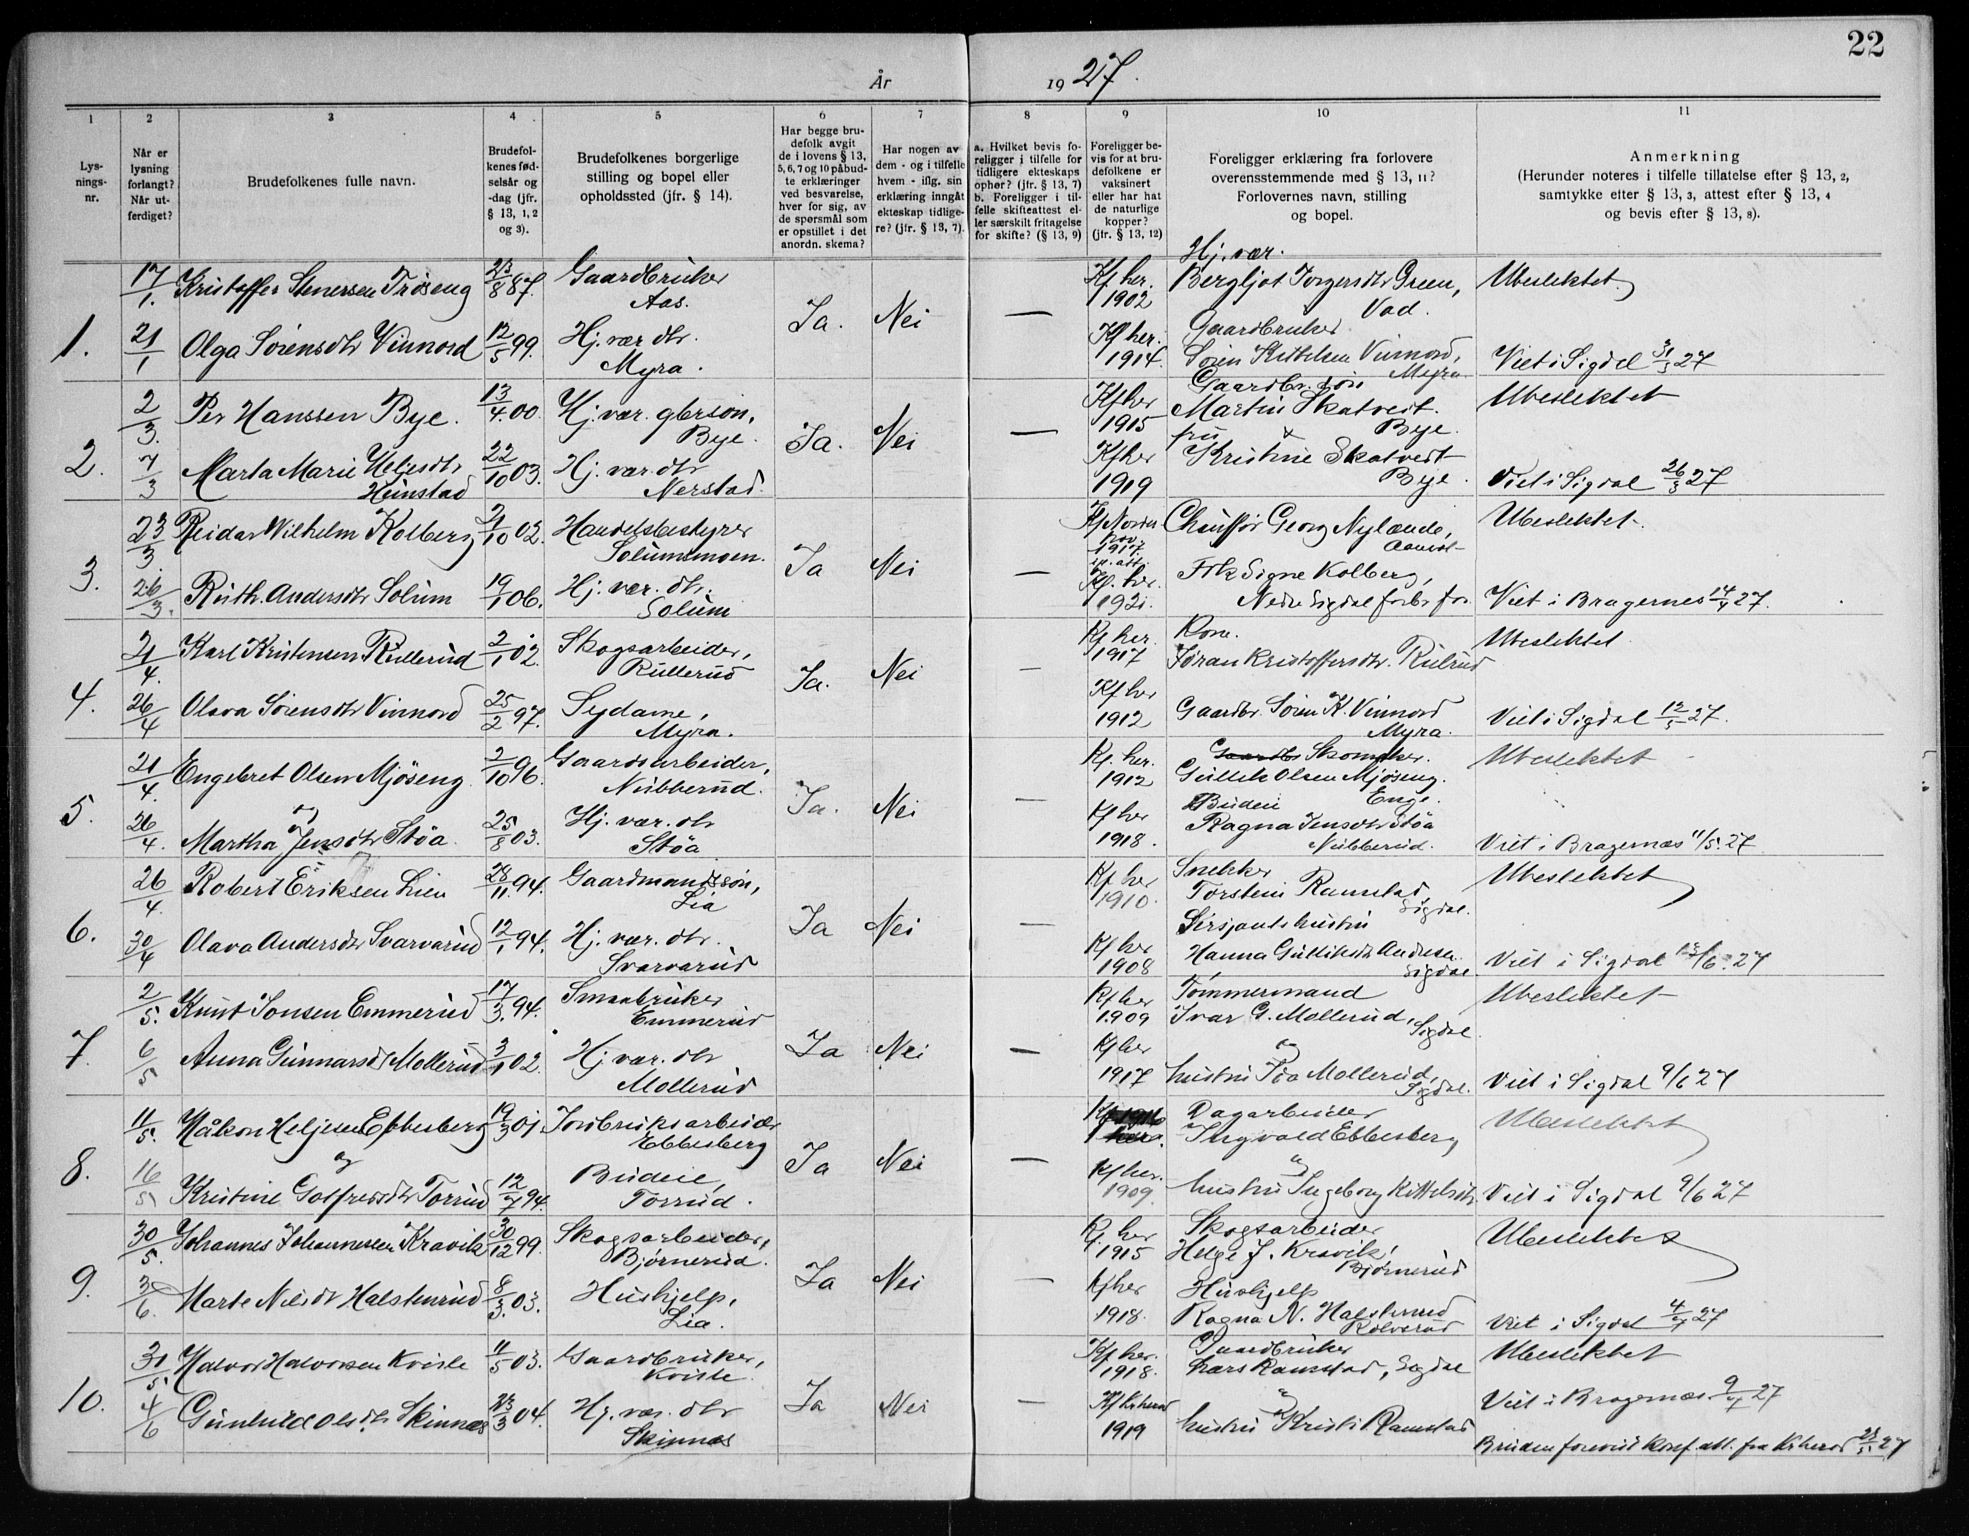 22
År
1927.
1
2
3
4
5
6
7
8
9
10
11
Lys-
nings-
nr.
Når er
lysning
forlangt?
Når ut-
ferdiget?
Brudefolkenes fulle navn.
Brudefol-
kenes fød-
selsår og
-dag (jfr.
§ 13, 1, 2
og 3).
Brudefolkenes borgerlige
stilling og bopel eller
opholdssted (jfr. § 14).
Har begge bru-
defolk avgit
de i lovens § 13,
5, 6, 7 og 10 påbud-
te erklæringer
ved besvarelse,
hver for sig, av
de spørsmål som
er opstillet i det
anordn. skema?
Har nogen av
dem - og i tilfelle
hvem - iflg. sin
erklæring inngåt
ekteskap tidlige-
re? (jfr. § 13, 7).
a. Hvilket bevis fo-
religger i tilfelle for
tidligere ekteskaps
ophør? (jfr. § 13, 7)
b. Foreligger i til-
felle skifteattest el-
ler særskilt fritagelse
for skifte? (§ 13, 9)
Foreligger be-
vis for at bru-
defolkene er
vaksinert
eller har hat
de naturlige
kopper?
(jfr. § 13, 12)
Foreligger erklæring fra forlovere
overensstemmende med § 13, 11?
Forlovernes navn, stilling
og bopel.
Anmerkning
(Herunder noteres i tilfelle tillatelse efter § 13, 2,
samtykke efter § 13, 3, attest efter § 13, 4
og bevis efter § 13, 8).
1.
17/1. Kristoffer Stenersen Trøseng 23/8 87. Gaardbruker Aas.
21/1 Olga Sørensdtr Vinnord 12/5 99. Hj. vær dtr. Myra.
Ja. Nei —
Kf her. 1902 Hj. vær. Bergljot Torgersdtr Green, Vad. Ubeslektet
Kf her. 1914. Gaardbruker Søren Kittelsen Vinnord, Myra. Viet i Sigdal 31/3 27
2.
2/3. Per Hanssen Bye. 13/4. 00. Hj. vær. gbr søn, Bye.
7/3 Marta Marie Heljesdtr Heimstad 22/10 03. Hj. vær. dtr Nerstad.
Ja. Nei —
Kf her 1915 Gaardbr. søn Martin Skatvedt. Bye. Ubeslektet
Kf her 1919 fru Kristine Skatvedt Bye. Viet i Sigdal 26/3 27
3.
23/3 Reidar Wilhelm Kolberg 21/10 02. Handelsbestyrer Solummoen.
26/3. Ruth Andersdtr Solum 19/1 06. Hj. vær. dtr. Solum
Ja Nei —
1917. Chauffør Georg Nylænde, Ubeslektet.
Kf. her. 1921. Frk Signe Kolberg, Nedre Sigdal forbr. for. Viet i Bragernes 14/4 27.
4.
21/4. Karl Kristensen Rullerud 2/1 02. Skogsarbeider, Rullerud
26/4 Olava Sørensdtr Vinnord 25/2 97. Sydame, Myra.
Ja. Nei —
Kf her. 1917 Kone. Jøran Kristoffersdtr. Rulrud Ubeslektet.
Kf her 1912 Gaardbr. Søren K. Vinnord Myra. Viet i Sigdal 12/5 27.
5.
21/4. Engebret Olsen Mjøseng 2/10 96. Gaardsarbeider, Nubberud.
og
26/4. Martha Jensdtr Støa. 25/8 03. Hj. vær. dtr Støa
Ja. Nei —
Kf. her. 1912 Skomaker. Gullik Olsen Mjøseng. Enge. Ubeslektet
Kf her 1918. Budeie Ragna Jensdtr Støa Nubberud. Viet i Bragernæs 11/5. 27
6.
26/4. Robert Eriksen Lien 28/11. 94. Gaardmandssøn, Lia
30/4 Olava Andersdtr Svarvarud 12/1 94. Hj. vær. dtr. Svarvarud
Ja Nei —
Kf her 1910. Snekker Torstein Ramstad, Sigdal. Ubeslektet
Kf her 1908 Sersjantshustru Hanna Gulliksdtr Andersen Sigdal Viet i Sigdal /6. 27
7.
2/5. Knut Jonsen Emmerud 17/3. 94. Smaabruker Emmerud
6/5 Anna Gunnarsdtr Mollerud 3/1 02. Hj. vær. dtr Mollerud
Ja Nei —
Kf her 1909 Tømmermand Ivar G. Mollerud, Sigdal. Ubeslektet
og
Kf her 1917 hustru Mollerud, Sigdal. Viet i Sigdal 9/6 27
8.
11/5. Håkon Heljesen Ebbesberg 19/3 01. Jordbruksarbeider Ebbesberg
og
16/5 Kristine Gotfredsdtr Torrud 12/7 94. Budeie, Torrud.
Ja Nei —
Dagarbeider Ingvald Ebbesberg Ubeslektet
og
Kf her. 1909. hustru Ingeborg Kittelsdtr. Viet i Sigdal 9/6 27
9.
30/5. Johannes Johannessen Kravik 30/12 99. Skogsarbeider, Bjørnerud.
3/6. Marte Nilsdtr Halstenrud 8/3. 03. Hushjelp, Lia.
Ja Nei —
Kf. her 1915 Skogsarbeider Helge J. Kravik, Bjørnerud Ubeslektet
Kf her 1918. Hushjelp Ragna N. Halstenrud Viet i Sigdal 4/7 27
10.
31/5. Halvor Halvorsen Kvisle 11/5 03. Gaardbruker, Kvisle.
4/6 Gunhild Olsdtr Skinnæs 23/3 04. Hj. vær. dtr Skinnæs
Ja Nei —
Kf her. 1918. Gaardbruker Lars Ramstad, Sigdal Ubeslektet
og
1919 hustru Kristi Ramstad Viet i Bragernæs 9/7 27
Bruden forevist Konf. att. fra Krherad 23/5 27